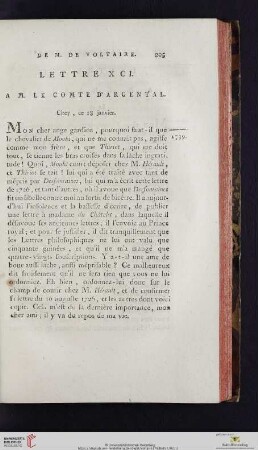 DE M. DE VOLTAIRE. 205
LETTRE XCI.
A M. LE COMTE D'ARGENTAL.
Cirey, ce 18 janvier.
MON cher ange gardien, pourquoi faut-il que
1739.
le chevalier de Mouhi, qui ne me connait pas, agisse
comme mon frère, et que Thiriot, qui me doit
tout, se tienne les bras croisés dans sa lâche ingrati-
tude! Quoi, Mouhi court déposer chez M. Hérault,
et Thiriot se tait! lui qui a été traité avec tant de
mépris par Desfontaines, lui qui m'a écrit cette lettre
de 1726, et tant d'autres, où il avoue que Desfontaines
fit un libelle contre moi au sortir de bicêtre. Il a aujour-
d'hui l'insolence et la bassesse d'écrire, de publier
une lettre à madame du Châtelet, dans laquelle il
désavoue ses anciennes lettres, il l'envoie au Prince
royal; et pour se justifier, il dit tranquillement que
les Lettres philosophiques ne lui ont valu que
cinquante guinées, et qu'il ne m'a mangé que
quatre-vingts souscriptions. Y a-t-il une ame de
boue aussi lâche, aussi méprisable? Ce malheureux
dit froidement qu'il ne fera rien que vous ne lui
ordonniez. Eh bien, ordonnez-lui donc sur le
champ de courir chez M. Hérault, et de confirmer
sa lettre du 16 auguste 1726, et les autres dont voici
copie. Ceci m'est de la dernière importance, mon
cher ami; il y va du repos de ma vie.